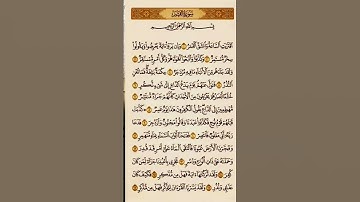 سورة القمر
بسم الله الرحمن الرحيم
اقتربت الساعة وانشق القمر وإن يروا آية يعرضوا ويقولوا
سحر مستمر وكذبوا واتبعوا أهواءهم وكل أمر مستقر
ولقد جاءهم من الأنباء ما فيه مزدجر حكمة بالغة فما تغن
النذر فتول عنهم يوم يدع الداع إلى شيء نكر
خشعا أبصارهم يخرجون من الأجداث كأنهم جراد منتشر
مهطعين إلى الداع يقول الكافرون هذا يوم عسر كذبت
قبلهم قوم نوح فكذبوا عبدنا وقالوا مجنون وازدجر فدعا
ربه أني مغلوب فانتصر ففتحنا أبواب السماء بماء منهمر
وفجرنا الأرض عيونا فالتقى الماء على أمر قد قدر
وحملناه على ذات ألواح ودسر تجري بأعيننا جزاء لمن كان
كفر ولقد تركناها آية فهل من مدكر فكيف كان
عذابي ونذر ولقد يسرنا القرآن للذكر فهل من مدكر